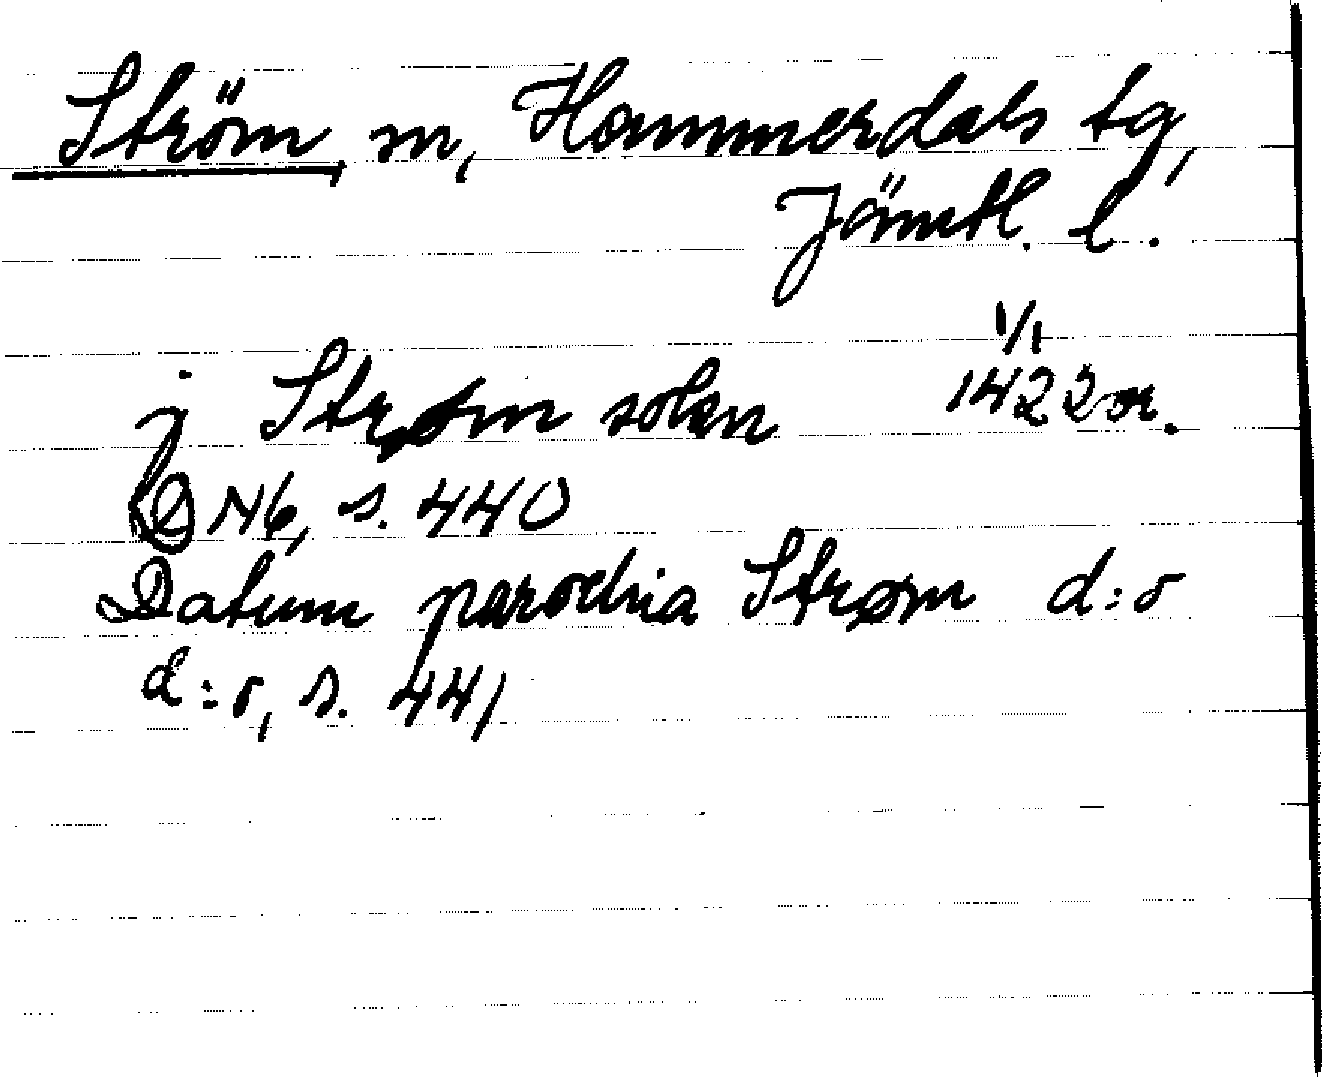 Ström, sn, Hammerdals tg,
Jämtl. l.
j Strøm sokn 1/1 1422 or.
DN 6, s. 440
Datum parochia Strøm d:o
d:o, s. 441